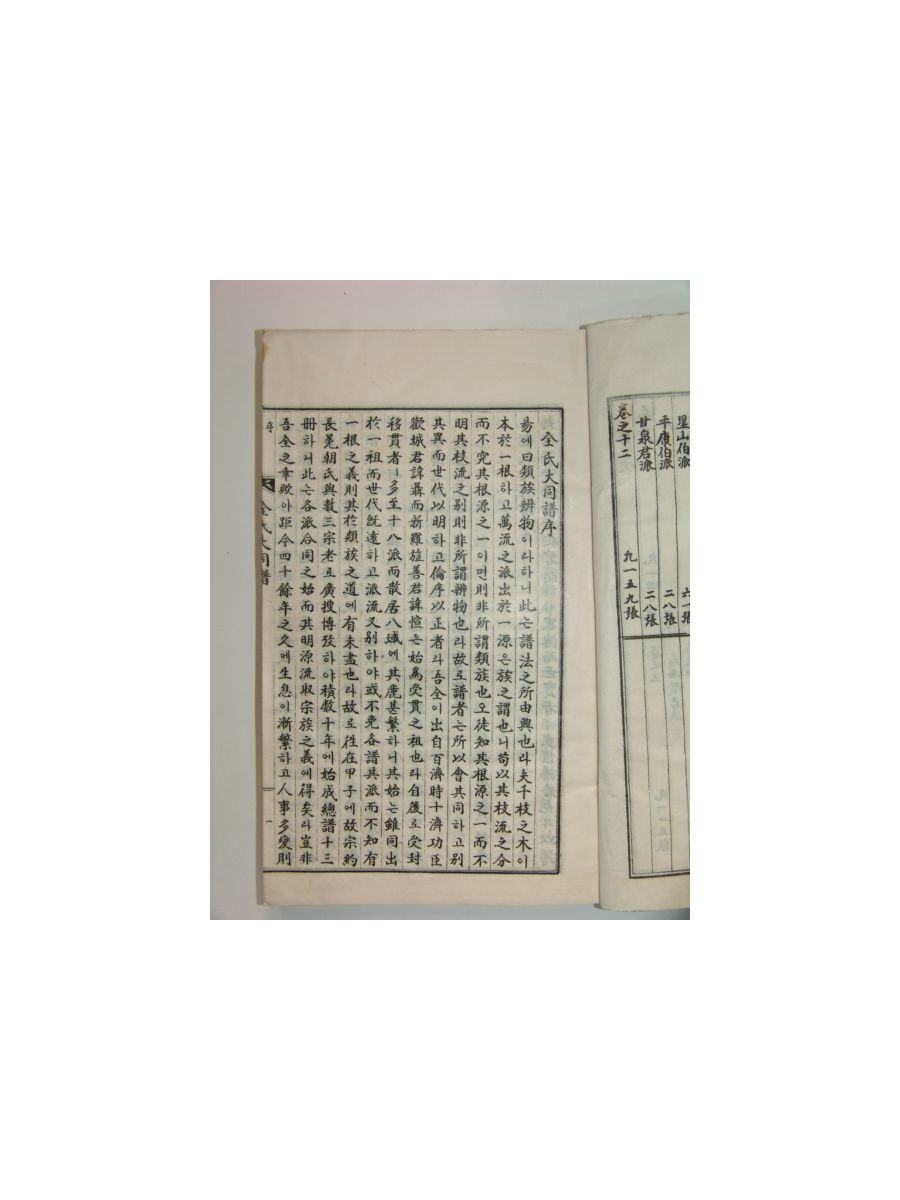 星山伯派 六一張
平康伯派 二八張
甘泉君派 二八張
卷之十二 九一五九張
全氏大同譜序
易에曰類族辨物이라하니此는譜法之所由興也라夫千枝之木이
本於一根하고萬流之派出於一源은族之謂也니苟以其枝流之分
而不究其根源之一이면則非所謂類族也오徒知其根源之一而不
明其枝流之別則非所謂辨物也라故로譜者는所以會其同하고別
其異而世代以明하고倫序以正者라吾全이出自百濟時十濟功臣
歡城君諱聶而新羅旌善君諱愃은始爲受貫之祖也라自後로受封
移貫者ㅣ多至十八派而散居八域에其麗甚繁하니其始는雖同出
於一祖而世代旣遠하고派流又別하야或不免各譜其派而不知有
一根之義則其於類族之道에有未盡也라故로徃在甲子에故宗約
長堯朝氏與數三宗老로廣搜博攷하야積數十年에始成總譜十三
冊하니此는各派合同之始而其明源流収宗族之義에得矣라豈非
吾全之幸歟아距今四十餘年之久에生息이漸繁하고人事多變則
序
全氏大同譜
一